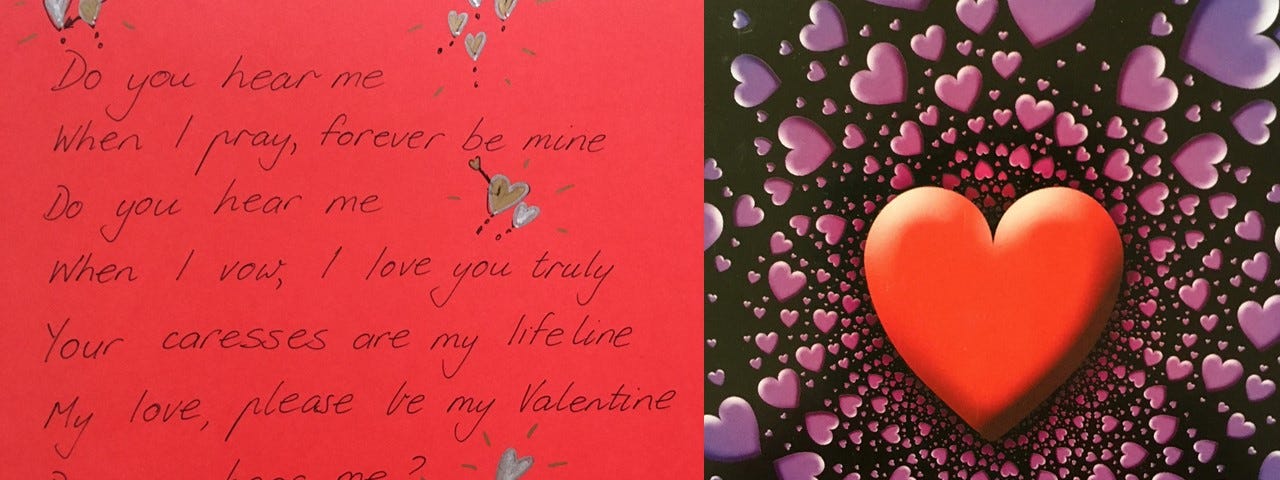 Do you hear me
When I pray, forever be mine
Do you hear me
When I vow, I love you truly
Your caresses are my lifeline
My love, please be my Valentine
hear me?